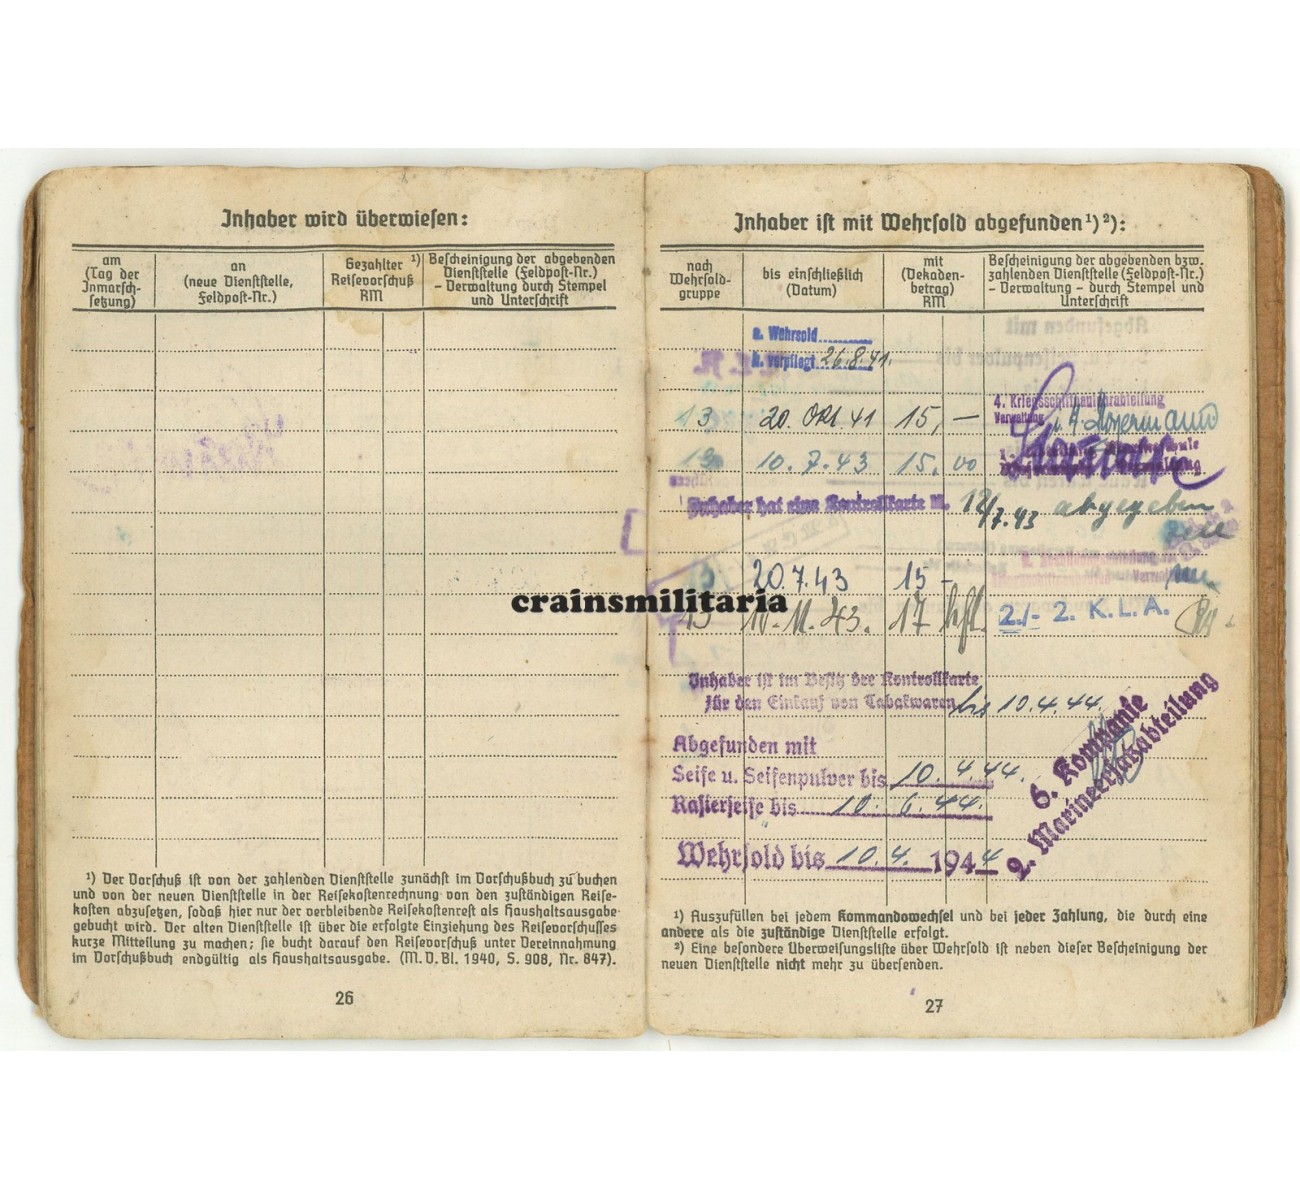 Inhaber wird überwiesen:
am
(Tag der
Inmarsch-
setzung)
an
(neue Dienststelle,
Feldpost-Nr.)
Gezahlter ¹)
Reisevorschuß
RM
Bescheinigung der abgebenden
Dienststelle (Feldpost-Nr.)
– Verwaltung durch Stempel
und Unterschrift
¹) Der Vorschuß ist von der zahlenden Dienststelle zunächst im Vorschußbuch zu buchen
und von der neuen Dienststelle in der Reisekostenrechnung von den zuständigen Reise-
kosten abzusetzen, sodaß hier nur der verbleibende Reisekostenrest als Haushaltsausgabe
gebucht wird. Der alten Dienststelle ist über die erfolgte Einziehung des Reisevorschusses
kurze Mitteilung zu machen; sie bucht darauf den Reisevorschuß unter Vereinnahmung
im Vorschußbuch endgültig als Haushaltsausgabe. (M. V. Bl. 1940, S. 908, Nr. 847).
26
Inhaber ist mit Wehrsold abgefunden¹)²):
nach
Wehrsold-
gruppe
bis einschließlich
(Datum)
mit
(Dekaden-
betrag)
RM
Bescheinigung der abgebenden bzw.
zahlenden Dienststelle (Feldpost-Nr.)
– Verwaltung – durch Stempel und
Unterschrift
a. Wehrsold
b. verpflegt 26.8.41.
4. Kriegsschiffbaulehrabteilung
Verwaltung
13 20. Okt 41 15,—
10.7.43 15.00
Inhaber hat eine Kontrollkarte M. 12/7.43 abgegeben
20.7.43 15 –
10.11.43. 17 2./- 2. K.L.A.
Inhaber ist im Besitz der Kontrollkarte
für den Einkauf von Tabakwaren bis 10.4.44.
Abgefunden mit
Seife u. Seifenpulver bis 10.4.44.
Rasierseife bis 10.6.44.
Wehrsold bis 10.4. 1944
6. Kompanie
2. Marineersatzabteilung
¹) Auszufüllen bei jedem Kommandowechsel und bei jeder Zahlung, die durch eine
andere als die zuständige Dienststelle erfolgt.
²) Eine besondere Überweisungsliste über Wehrsold ist neben dieser Bescheinigung der
neuen Dienststelle nicht mehr zu übersenden.
27
crainsmilitaria